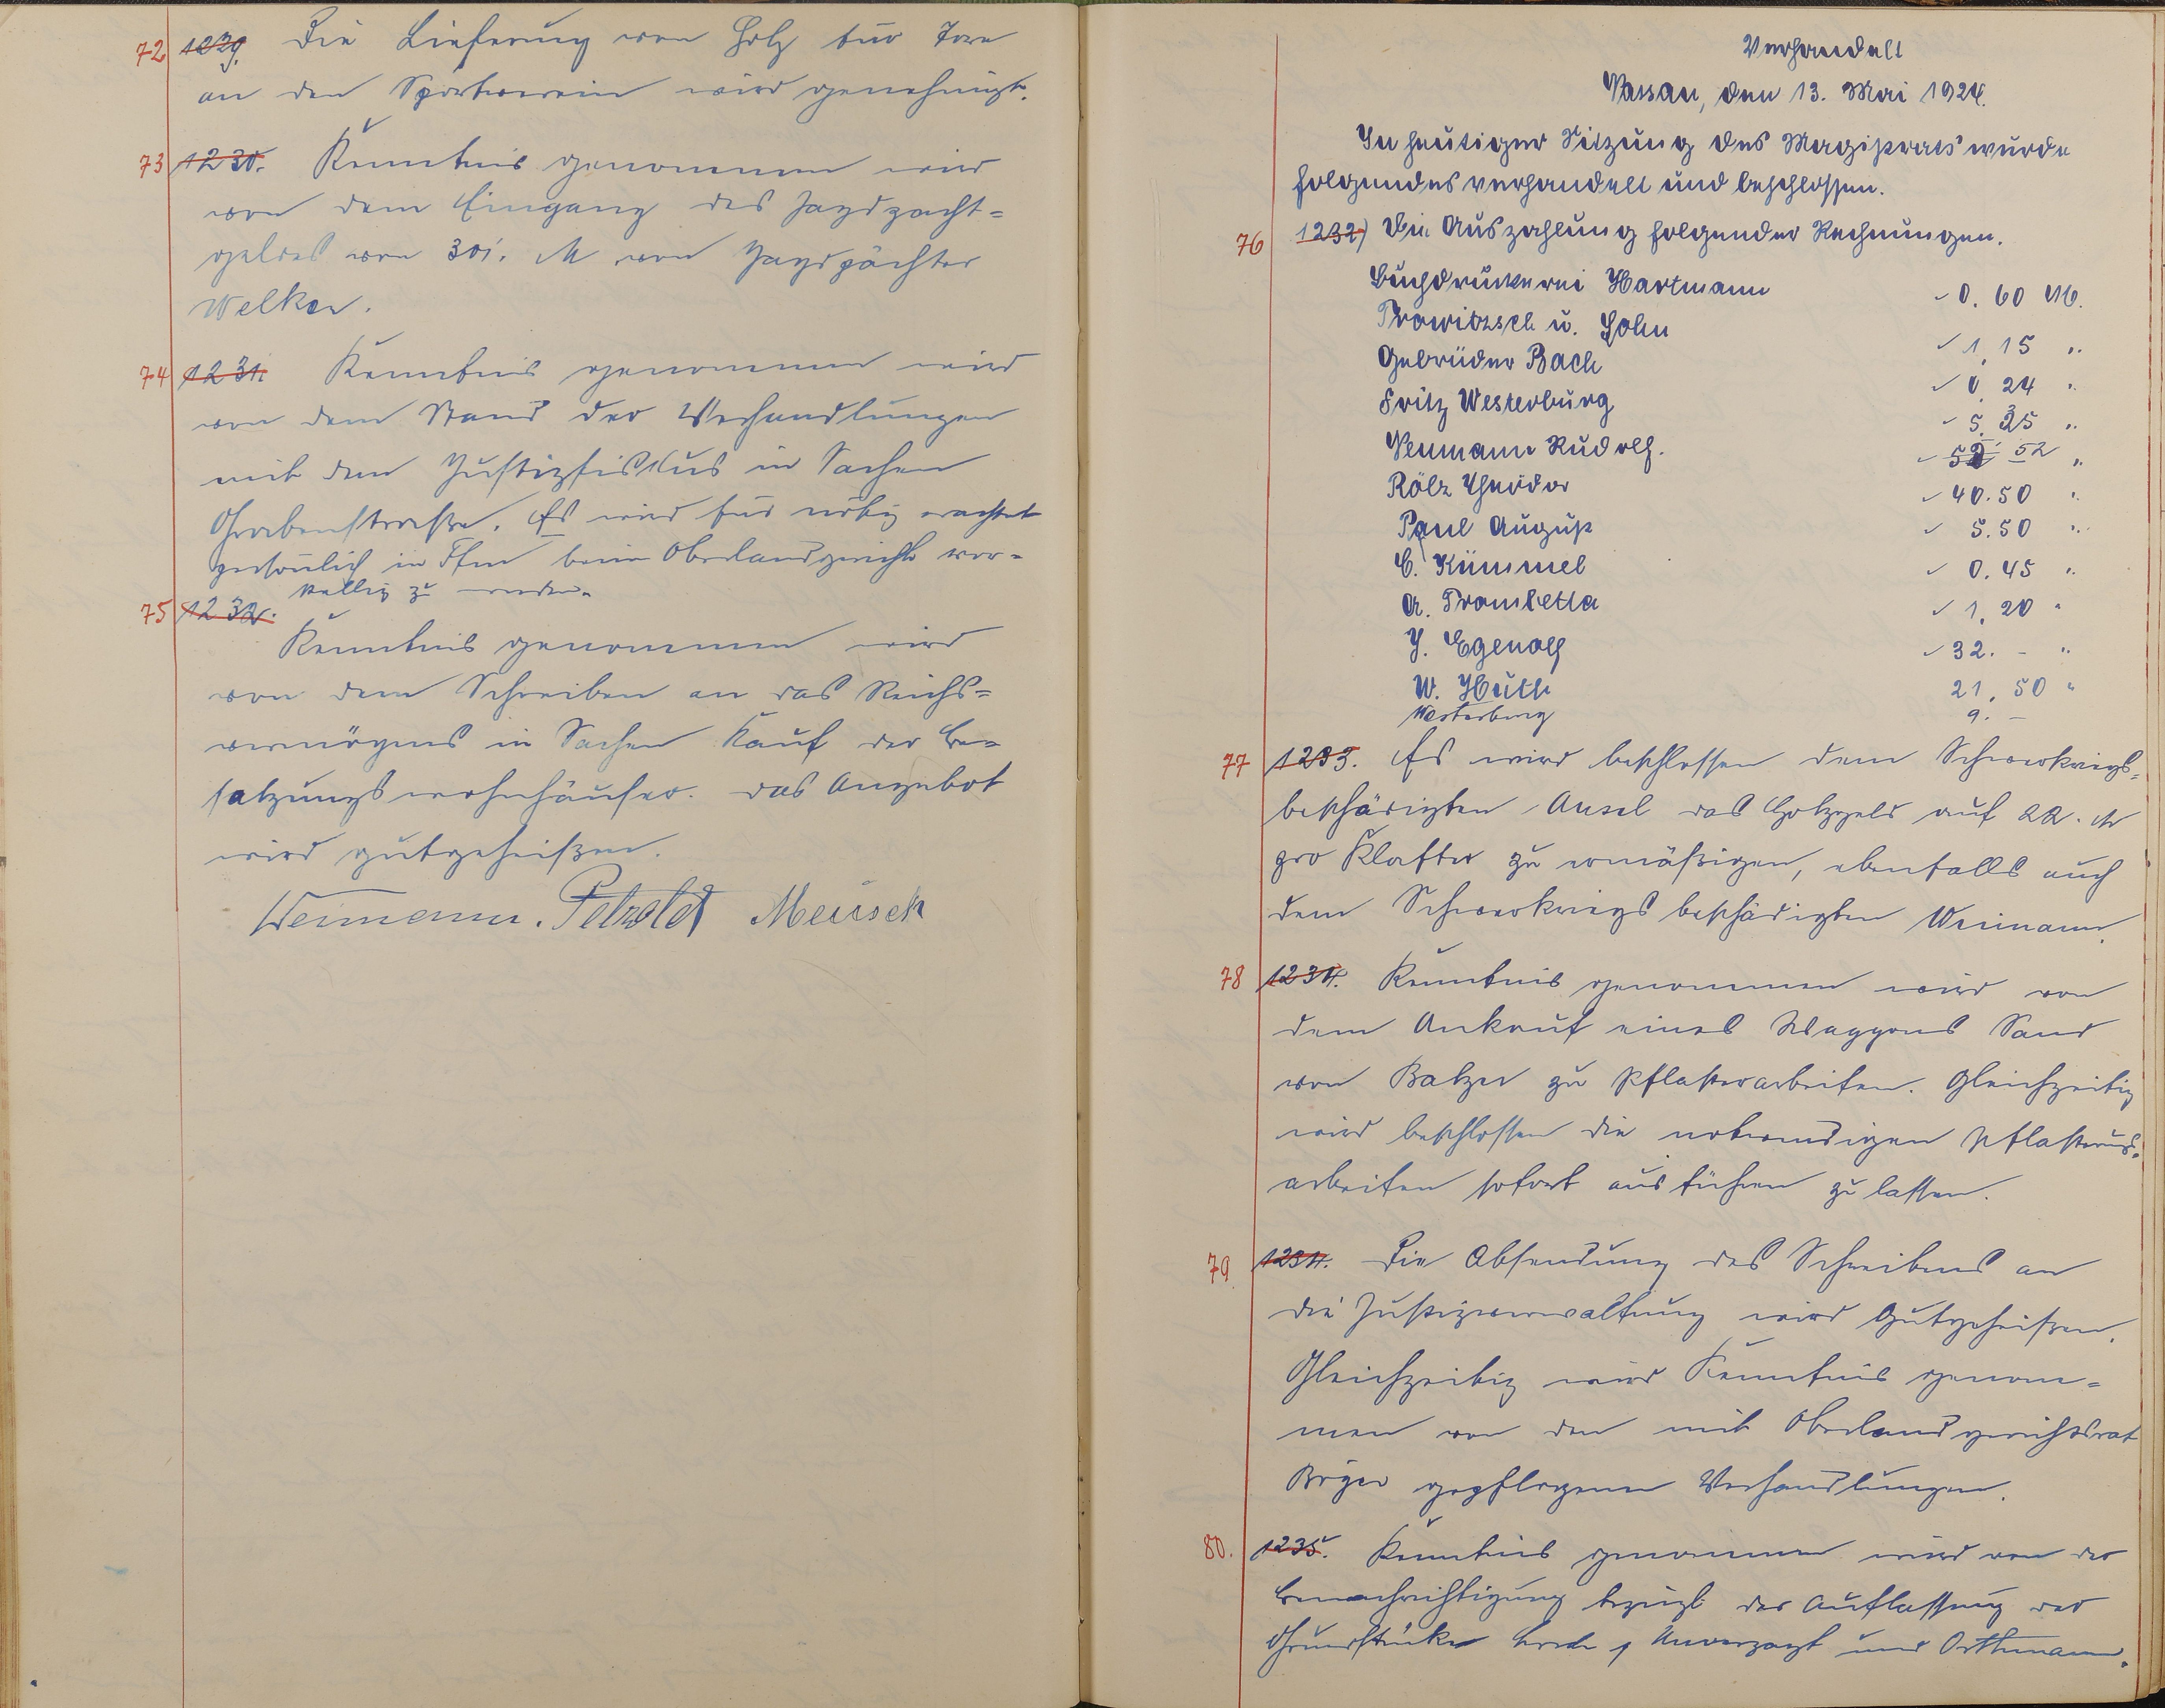 72 1229. Die Lieferung von Holz für Tore
an den Sportverein wird genehmigt.
73 1230. Kenntnis genommen wird
von dem Eingang des Jagdpacht-
geldes von 301. M von Jagdpächter
Welker.
74 1231. Kenntnis genommen wird
von dem Stand der Verhandlungen
mit dem Justizfiskus in Sachen
Grabenstraße. Es wird für nötig erachtet
persönlich in Ffm beim Oberlandgericht vor-
stellig zu werden.
75 1232.
Kenntnis genommen wird
von dem Schreiben an das Reichs-
vermögens in Sachen Kauf der Be-
satzungswohnhäuser. Das Angebot
wird gutgeheißen.
Weimann. Petzold Meusch
Verhandelt
Nassau, den 13. Mai 1924.
In heutiger Sitzung des Magistrats wurde
folgendes verhandelt und beschlossen.
76 1232) Die Auszahlung folgender Rechnungen.
Buchdruckerei Hartmann 0.60 M.
Trowitzsch u. Sohn 1,15 "
Gebrüder Bach 0,24 "
Fritz Westerburg 5.35 "
Neumann Rudolf. 52 "
Rölz Theodor 40.50 "
Paul August 5.50 "
C. Kümmel 0.45 "
A. Trombetta 1,20 "
J. Egenolf 32. - "
W. Huth 21,50 "
Westerburg 9. -
77 1233. Es wird beschlossen dem Schwerkriegs-
beschädigten Ansel das Holzgeld auf 22. M
pro Klafter zu ermäßigen, ebenfalls auch
dem Schwerkriegsbeschädigten Weimann.
78 1234. Kenntnis genommen wird von
dem Ankauf eines Waggons Sand
von Balzer zu Pflasterarbeiten. Gleichzeitig
wird beschlossen die notwendigen Pflasterungs-
arbeiten sofort ausführen zu lassen.
79 1234. Die Absendung des Schreibens an
die Justizverwaltung wird Gutgeheißen.
Gleichzeitig wird Kenntnis genom-
men von den mit Oberlandgerichtsrat
gepflogenen Verhandlungen.
80. 1235. Kenntnis genommen wird von der
Benachrichtigung bezügl. der Auflassung der
Grundstücke Unverzagt und Orthmann.